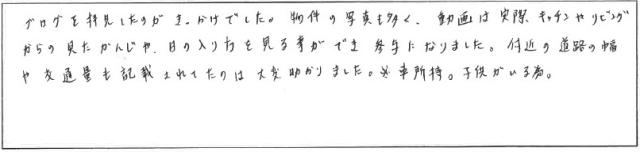 ブログを拝見したのがきっかけでした。物件の写真も多く、動画は実際、キッチンやリビング
からの見たかんじや、日の入り方を見る事ができ参考になりました。付近の道路の幅
や交通量も記載されてたのは大変助かりました。※車所持。子供がいる為。